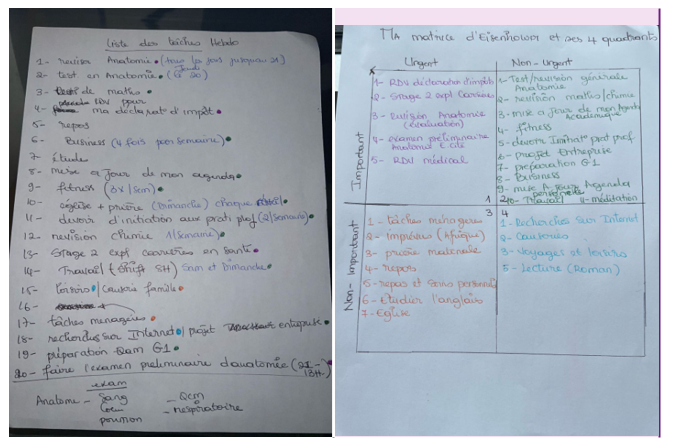 Liste des tâches Hebdo
1- revision Anatomie (tous les jours jusqu'au 21)
2- test en Anatomie (Jeudi 20)
3- de maths
4- RDV pour ma déclarat° d'impôt
5- repos
6- Business (4 fois par semaine)
7- Étude
8- mise à jour de mon agenda
9- fitness (3x/sem)
10- église + prière (Dimanche) chaque
11- devoir d'initiation aux prati prof (2/semaine)
12- revision chimie 1/semaine
13- Stage 2 expl carrières en santé
14- Travail (shift 8H) Sam et Dimanche
15- loisirs/causerie famille
16-
17- tâches menagères
18- recherches sur Internet/projet entreprise
19- préparation Qcm G1
20- faire l'examen preliminaire d'anatomie (21- 13H)
exam
Anatomie - Sang - Qcm
- respiratoire
poumon
MA matrice d'Eisenhower et ses 4 quadrants
Urgent
Non-Urgent
Important
1- RDV déclaration d'impôts
2- Stage 2 expl Carrières
3- Revision Anatomie (évaluation)
4- examen preliminaire Anatomie
5- RDV médical
1
1- Test/revision générale Anatomie
2- revision maths/chimie
3- mise à jour de mon Académique
4- fitness
5- devoir Initiat° prat prof
6- projet Entreprise
7- préparation G1
8- Business
9- mise à jour Agenda
10- Travail 11- méditation
2
Non-important
1- tâches menagères
2- Imprévus (Afrique)
3- prière matinale
4- repos
5- repas et soins personnels
6- Etudier l'anglais
7- Eglise
3
4
1- Recherches sur Internet
2- Causeries
3- voyages et loisirs
5- lecture (Roman)